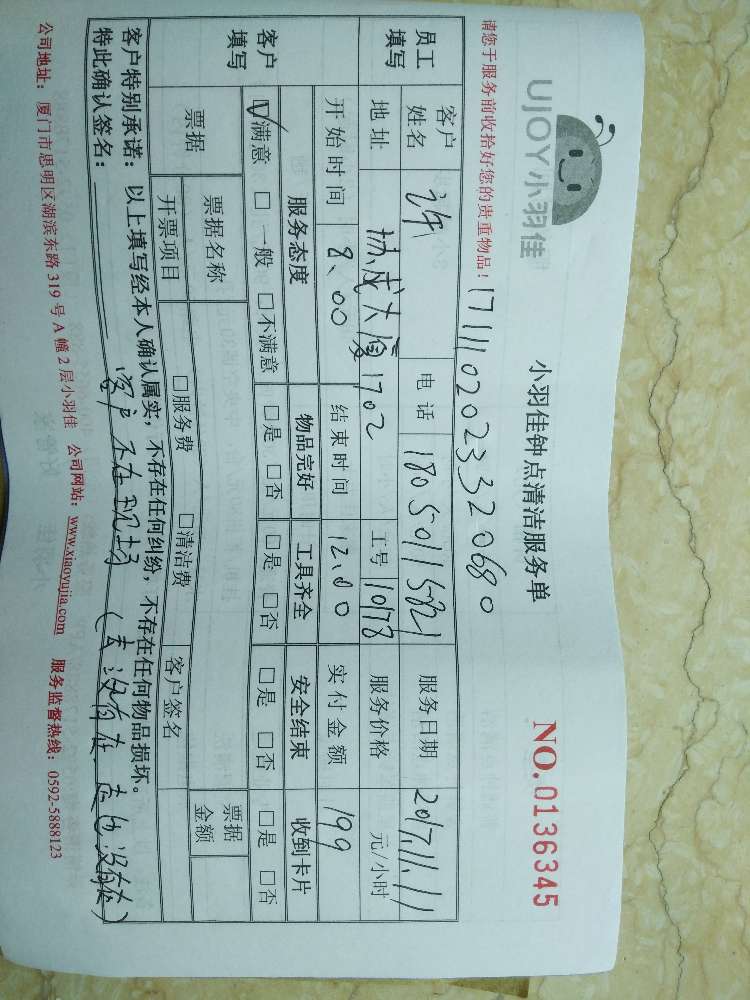 UJOY小羽佳
小羽佳钟点清洁服务单
NO.0136345
请您于服务前收拾好您的贵重物品！
1711102023320680
员工填写
客户姓名 许 电话 18050115821 服务日期 2017.11.11
地址 协成大厦1702 工号 10178 服务价格 元/小时
开始时间 8.00 结束时间 12.00 实付金额 199
客户填写
服务态度 物品完好 工具齐全 安全结束 收到卡片
☑满意 □一般 □不满意 □是 □否 □是 □否 □是 □否 □是 □否
票据 票据名称 票据金额
开票项目 □服务费 □清洁费 客户签名
客户特别承诺：以上填写经本人确认属实，不存在任何纠纷，不存在任何物品损坏。
特此确认签名： 客户不在现场 (去没有在 走也没有在)
公司地址：厦门市思明区湖滨东路319号A幢2层小羽佳 公司网站：www.xiaoyujia.com 服务监督热线：0592-5888123